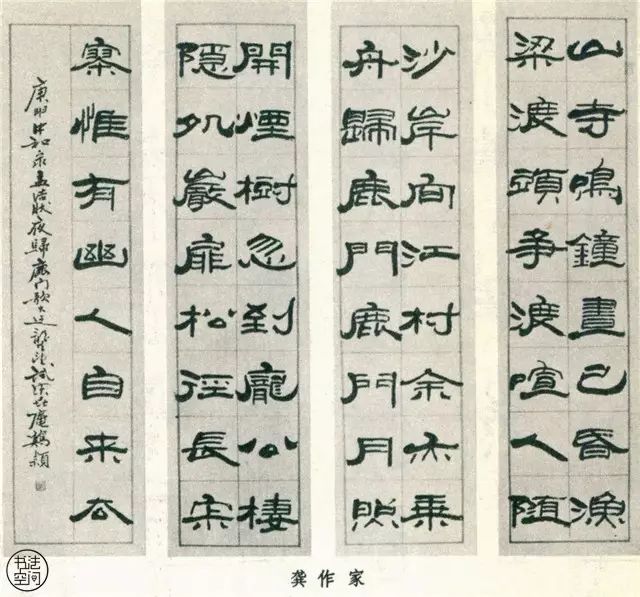 山寺鳴鐘晝已昏漁
梁渡頭爭渡喧人隨
沙岸向江村余亦乘
舟歸鹿門鹿門月照
開煙樹忽到龐公棲
隱処巖扉松徑長寂
寥惟有幽人自来去
庚申中和录孟浩然夜歸鹿门歌
龔作家
书法
空间